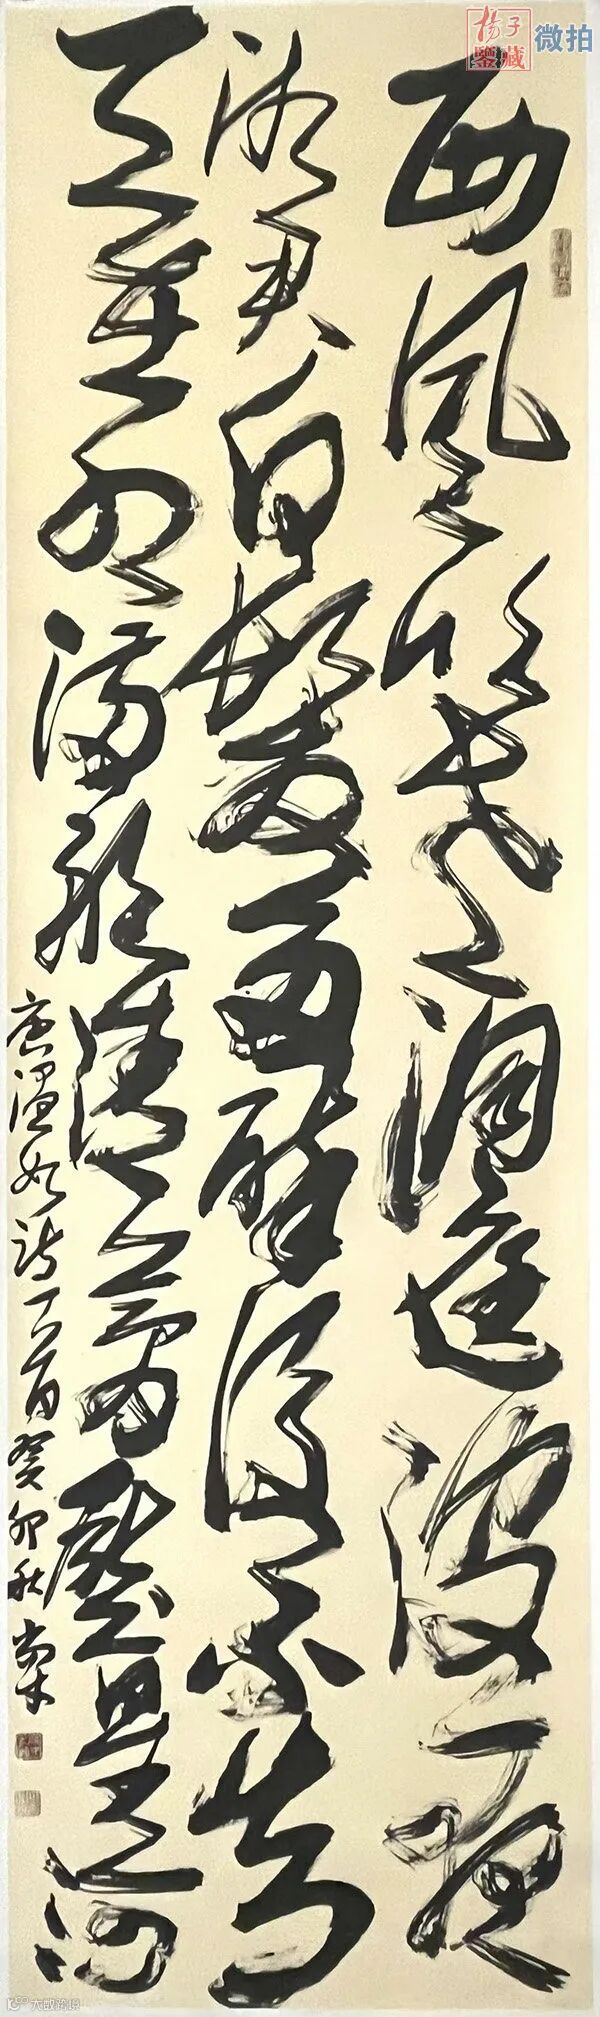 揚子
鑒藏
微拍
西風吹老洞庭波一夜
湘君白髮多醉後不知
天在水滿船清夢壓星河
唐溫如詩一首癸卯秋
大数跨境